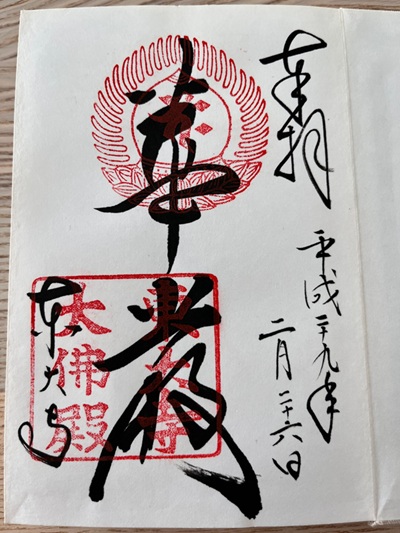 奉拝
平成二十九年
二月二十六日
華厳
東大寺
大佛殿
东大寺